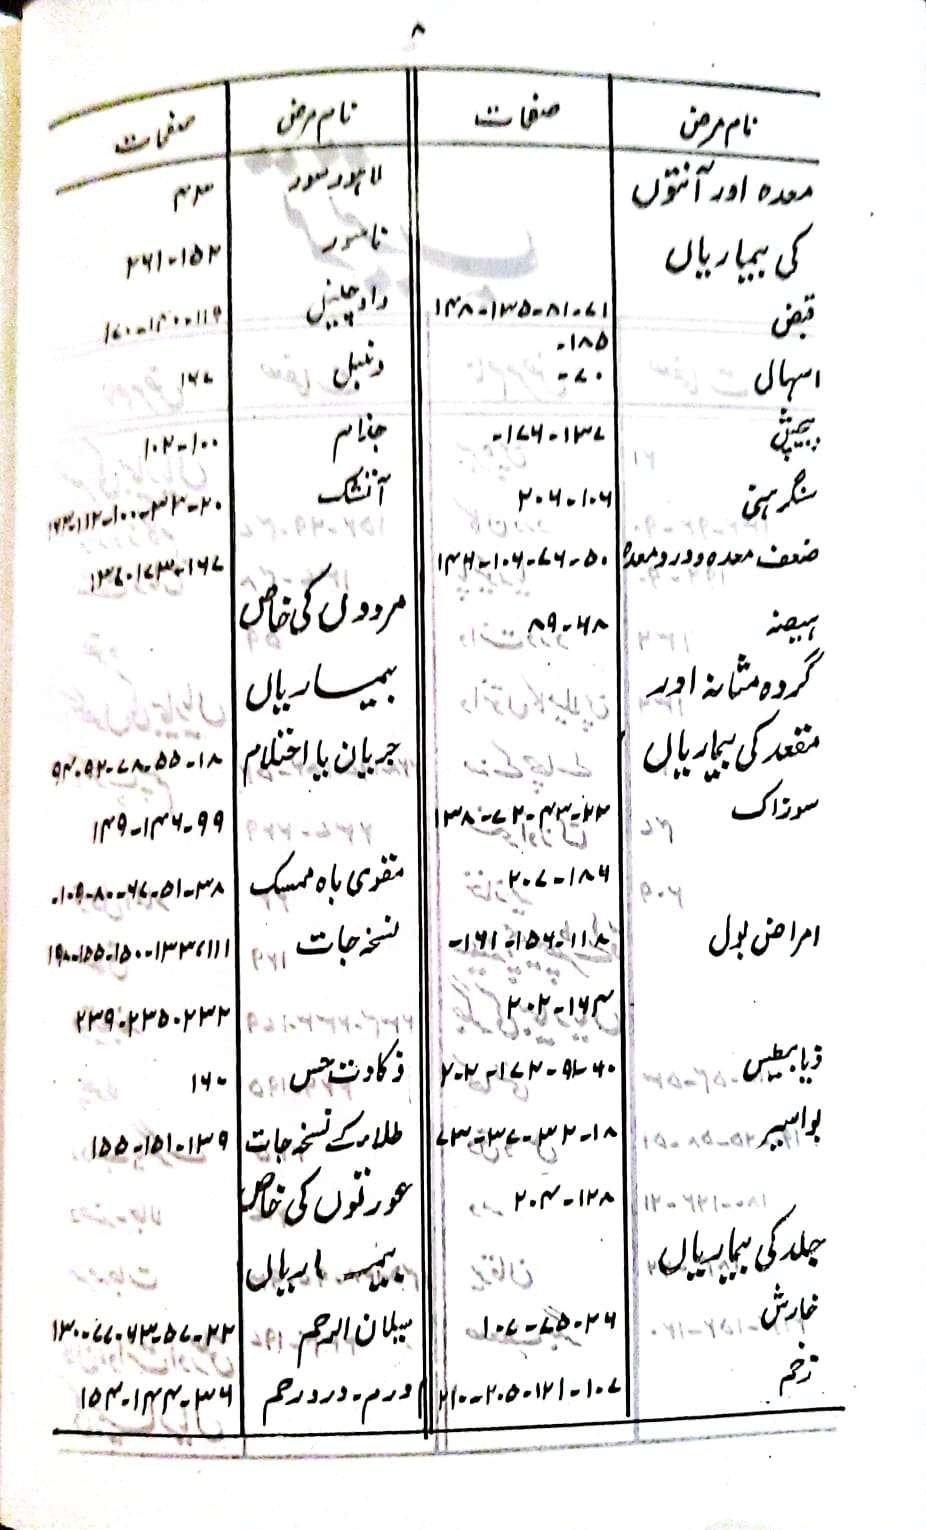 ۸
نام مرض صفحات
معدہ اور آنتوں
کی بیماریاں
قبض ۷۱-۸۱-۱۳۵-۱۴۸
۱۸۵-
اسہال ۷۰-
پیچش ۱۳۷-۱۷۶-
سنگرہنی ۱۰۶-۲۰۶
ضعف معدہ و درد معدہ ۵۰-۷۶-۱۰۶-۱۴۶
ہیضہ ۶۸-۸۹
گردہ مثانہ اور
مقعد کی بیماریاں
سوزاک ۲۳-۴۳-۷۲-۱۳۸
۱۸۶-۲۰۷
امراض بول ۱۱۸-۱۵۶-۱۶۱-
۱۶۴-۲۰۲
ذیابیطس ۶۰-۹۱-۱۷۲-۲۰۲
بواسیر ۱۸-۳۲-۳۷-۷۳
۱۲۸-۲۰۴
جلد کی بیماریاں
خارش ۲۶-۷۵-۱۰۷
زخم ۱۰۷-۱۲۱-۲۰۵-۲۱۰
نام مرض صفحات
لاہور سور ۴۳
ناسور ۱۵۲-۲۶۱
داد چنبل ۱۱۹-۱۴۰-۱۷۰
دنبل ۱۶۷
جذام ۱۰۰-۱۰۲
آتشک ۲۰-۳۳-۱۰۰-۱۱۲-۱۶۳
۱۶۷-۱۷۳-۱۳۷
مردوں کی خاص
بیماریاں
جریان یا احتلام ۱۸-۵۵-۷۸-۹۲-۹۴
۹۹-۱۴۶-۱۴۹
مقوی باہ ممسک ۳۸-۵۱-۶۷-۸۰-۱۰۹-
نسخہ جات ۱۱۱-۱۳۳-۱۵۰-۱۵۵-۱۹۸
۲۳۲-۲۳۵-۲۳۹
ذکاوت حس ۱۶۰
طلاء کے نسخہ جات ۱۳۹-۱۵۱-۱۵۵
عورتوں کی خاص
بیماریاں
سیلان الرحم ۲۲-۵۷-۶۳-۷۷-۱۳۰
ورم-درد رحم ۳۶-۱۴۴-۱۵۴